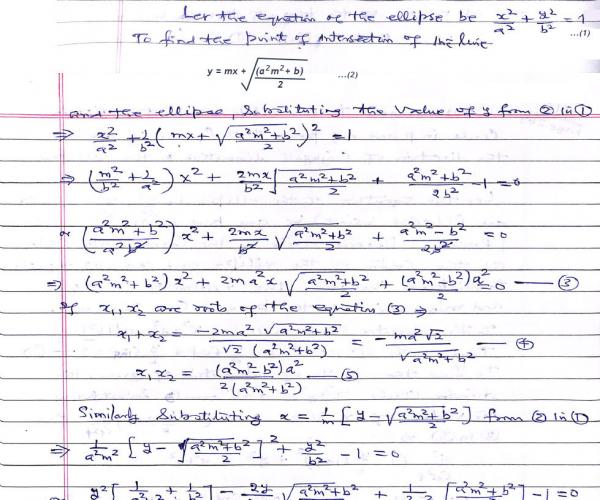 Let the equation of the ellipse be x²/a² + y²/b² = 1 ...(1)
To find the point of intersection of the line
y = mx + √((a²m² + b)/2) ...(2)
and the ellipse, substituting the value of y from ② in ①
⇒ x²/a² + 1/b² (mx + √((a²m²+b²)/2))² = 1
⇒ (m²/b² + 1/a²) x² + 2mx/b² √((a²m²+b²)/2) + (a²m²+b²)/2b² - 1 = 0
or ((a²m²+b²)/a²b²) x² + 2mx/b² √((a²m²+b²)/2) + (a²m²-b²)/2b² = 0
⇒ (a²m²+b²) x² + 2ma²x √((a²m²+b²)/2) + (a²m²-b²)a²/2 = 0 — ③
If x₁, x₂ are roots of the equation (3) ⇒
x₁+x₂ = -2ma² √(a²m²+b²) / √2 (a²m²+b²) = -ma²√2 / √(a²m²+b²) — ④
x₁x₂ = (a²m²-b²)a² / 2(a²m²+b²) — ⑤
Similarly substituting x = 1/m [y - √((a²m²+b²)/2)] from ② in ①
⇒ 1/a²m² [y - √((a²m²+b²)/2)]² + y²/b² - 1 = 0